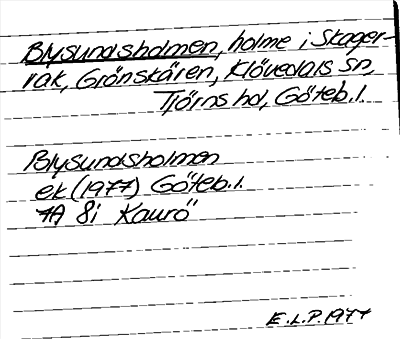 Blysundsholmen, holme i Skager-
rak, Grönskären, Klövedals sn,
Tjörns hd, Göteb.l.
Blysundsholmen
ek (1977) Göteb.l.
7A 8i Kaurö
E.L.P. 1977